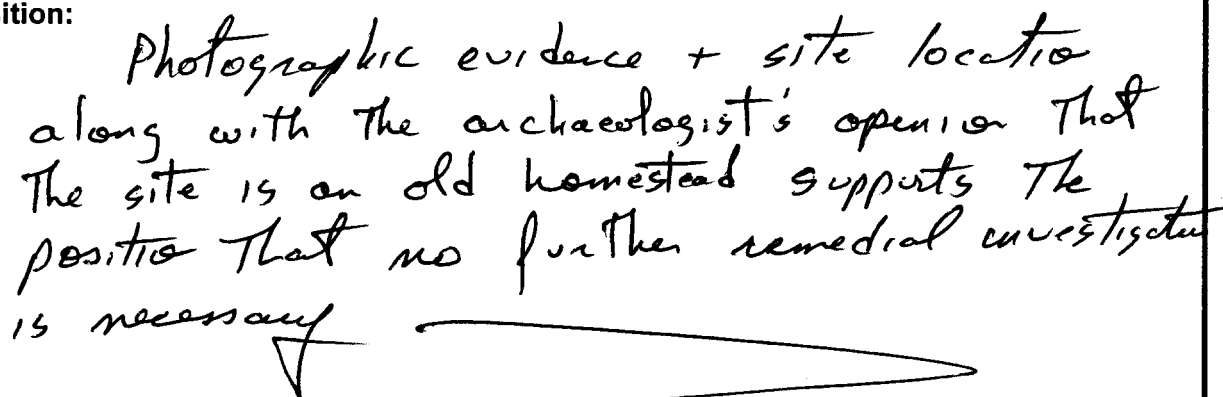 ition:
Photographic evidence + site locatio
along with The archaeologist's openion That
The site is an old homestead supports The
positio That no further remedial investigatu
is necessary